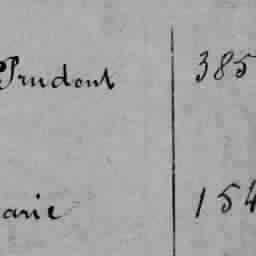 Prudont 385
arie 154